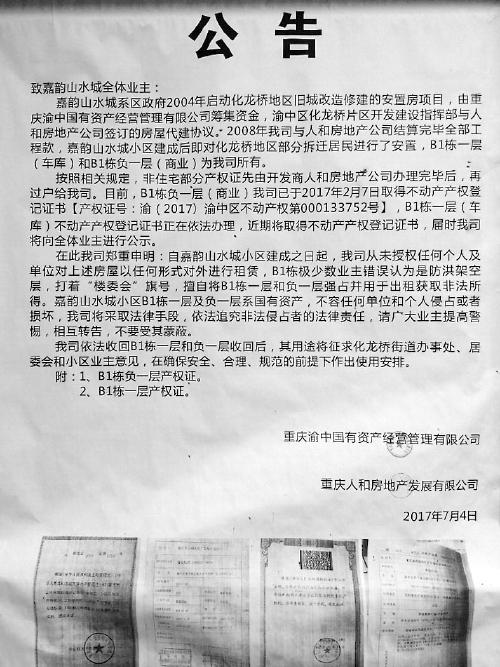 公告
致嘉韵山水城全体业主：
嘉韵山水城系区政府2004年启动化龙桥地区旧城改造修建的安置房项目，由重
庆渝中国有资产经营管理有限公司筹集资金，渝中区化龙桥片区开发建设指挥部与人
和房地产公司签订的房屋代建协议。2008年我司与人和房地产公司结算完毕全部工
程款，嘉韵山水城小区建成后即对化龙桥地区部分拆迁居民进行了安置，B1栋一层
（车库）和B1栋负一层（商业）为我司所有。
按照相关规定，非住宅部分产权证先由开发商人和房地产公司办理完毕后，再
过户给我司。目前，B1栋负一层（商业）我司已于2017年2月7日取得不动产产权登
记证书【产权证号：渝（2017）渝中区不动产权第000133752号】，B1栋一层（车
库）不动产产权登记证书正在依法办理，近期将取得不动产产权登记证书，届时我司
将向全体业主进行公示。
在此我司郑重申明：自嘉韵山水城小区建成之日起，我司从未授权任何个人及
单位对上述房屋以任何形式对外进行租赁，B1栋极少数业主错误认为是防洪架空
层，打着“楼委会”旗号，擅自将B1栋一层和负一层强占并用于出租获取非法所
得。嘉韵山水城小区B1栋一层及负一层系国有资产，不容任何单位和个人侵占或者
损坏，我司将采取法律手段，依法追究非法侵占者的法律责任，请广大业主提高警
惕，相互转告，不要受其蒙蔽。
我司依法收回B1栋一层和负一层收回后，其用途将征求化龙桥街道办事处、居
委会和小区业主意见，在确保安全、合理、规范的前提下作出使用安排。
附：1、B1栋负一层产权证。
2、B1栋一层产权证。
重庆渝中国有资产经营管理有限公司
重庆人和房地产发展有限公司
2017年7月4日